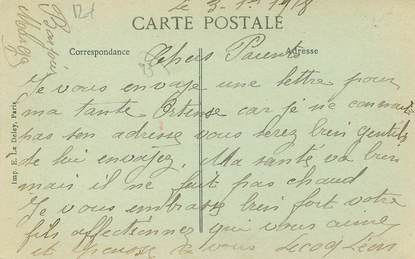 le 3-1er 1918
CARTE POSTALE
Correspondance
Adresse
Chers Parents
Je vous envoye une lettre pour
ma tante Ortense car je ne connait
pas son adresse vous serez bien gentils
de lui envoyez. Ma santé va bien
mais il ne fait pas chaud
Je vous embrasse bien fort votre
fils affectionner qui vous aime
et pense a vous Lecoq Léon
Imp. E. Le Deley, Paris